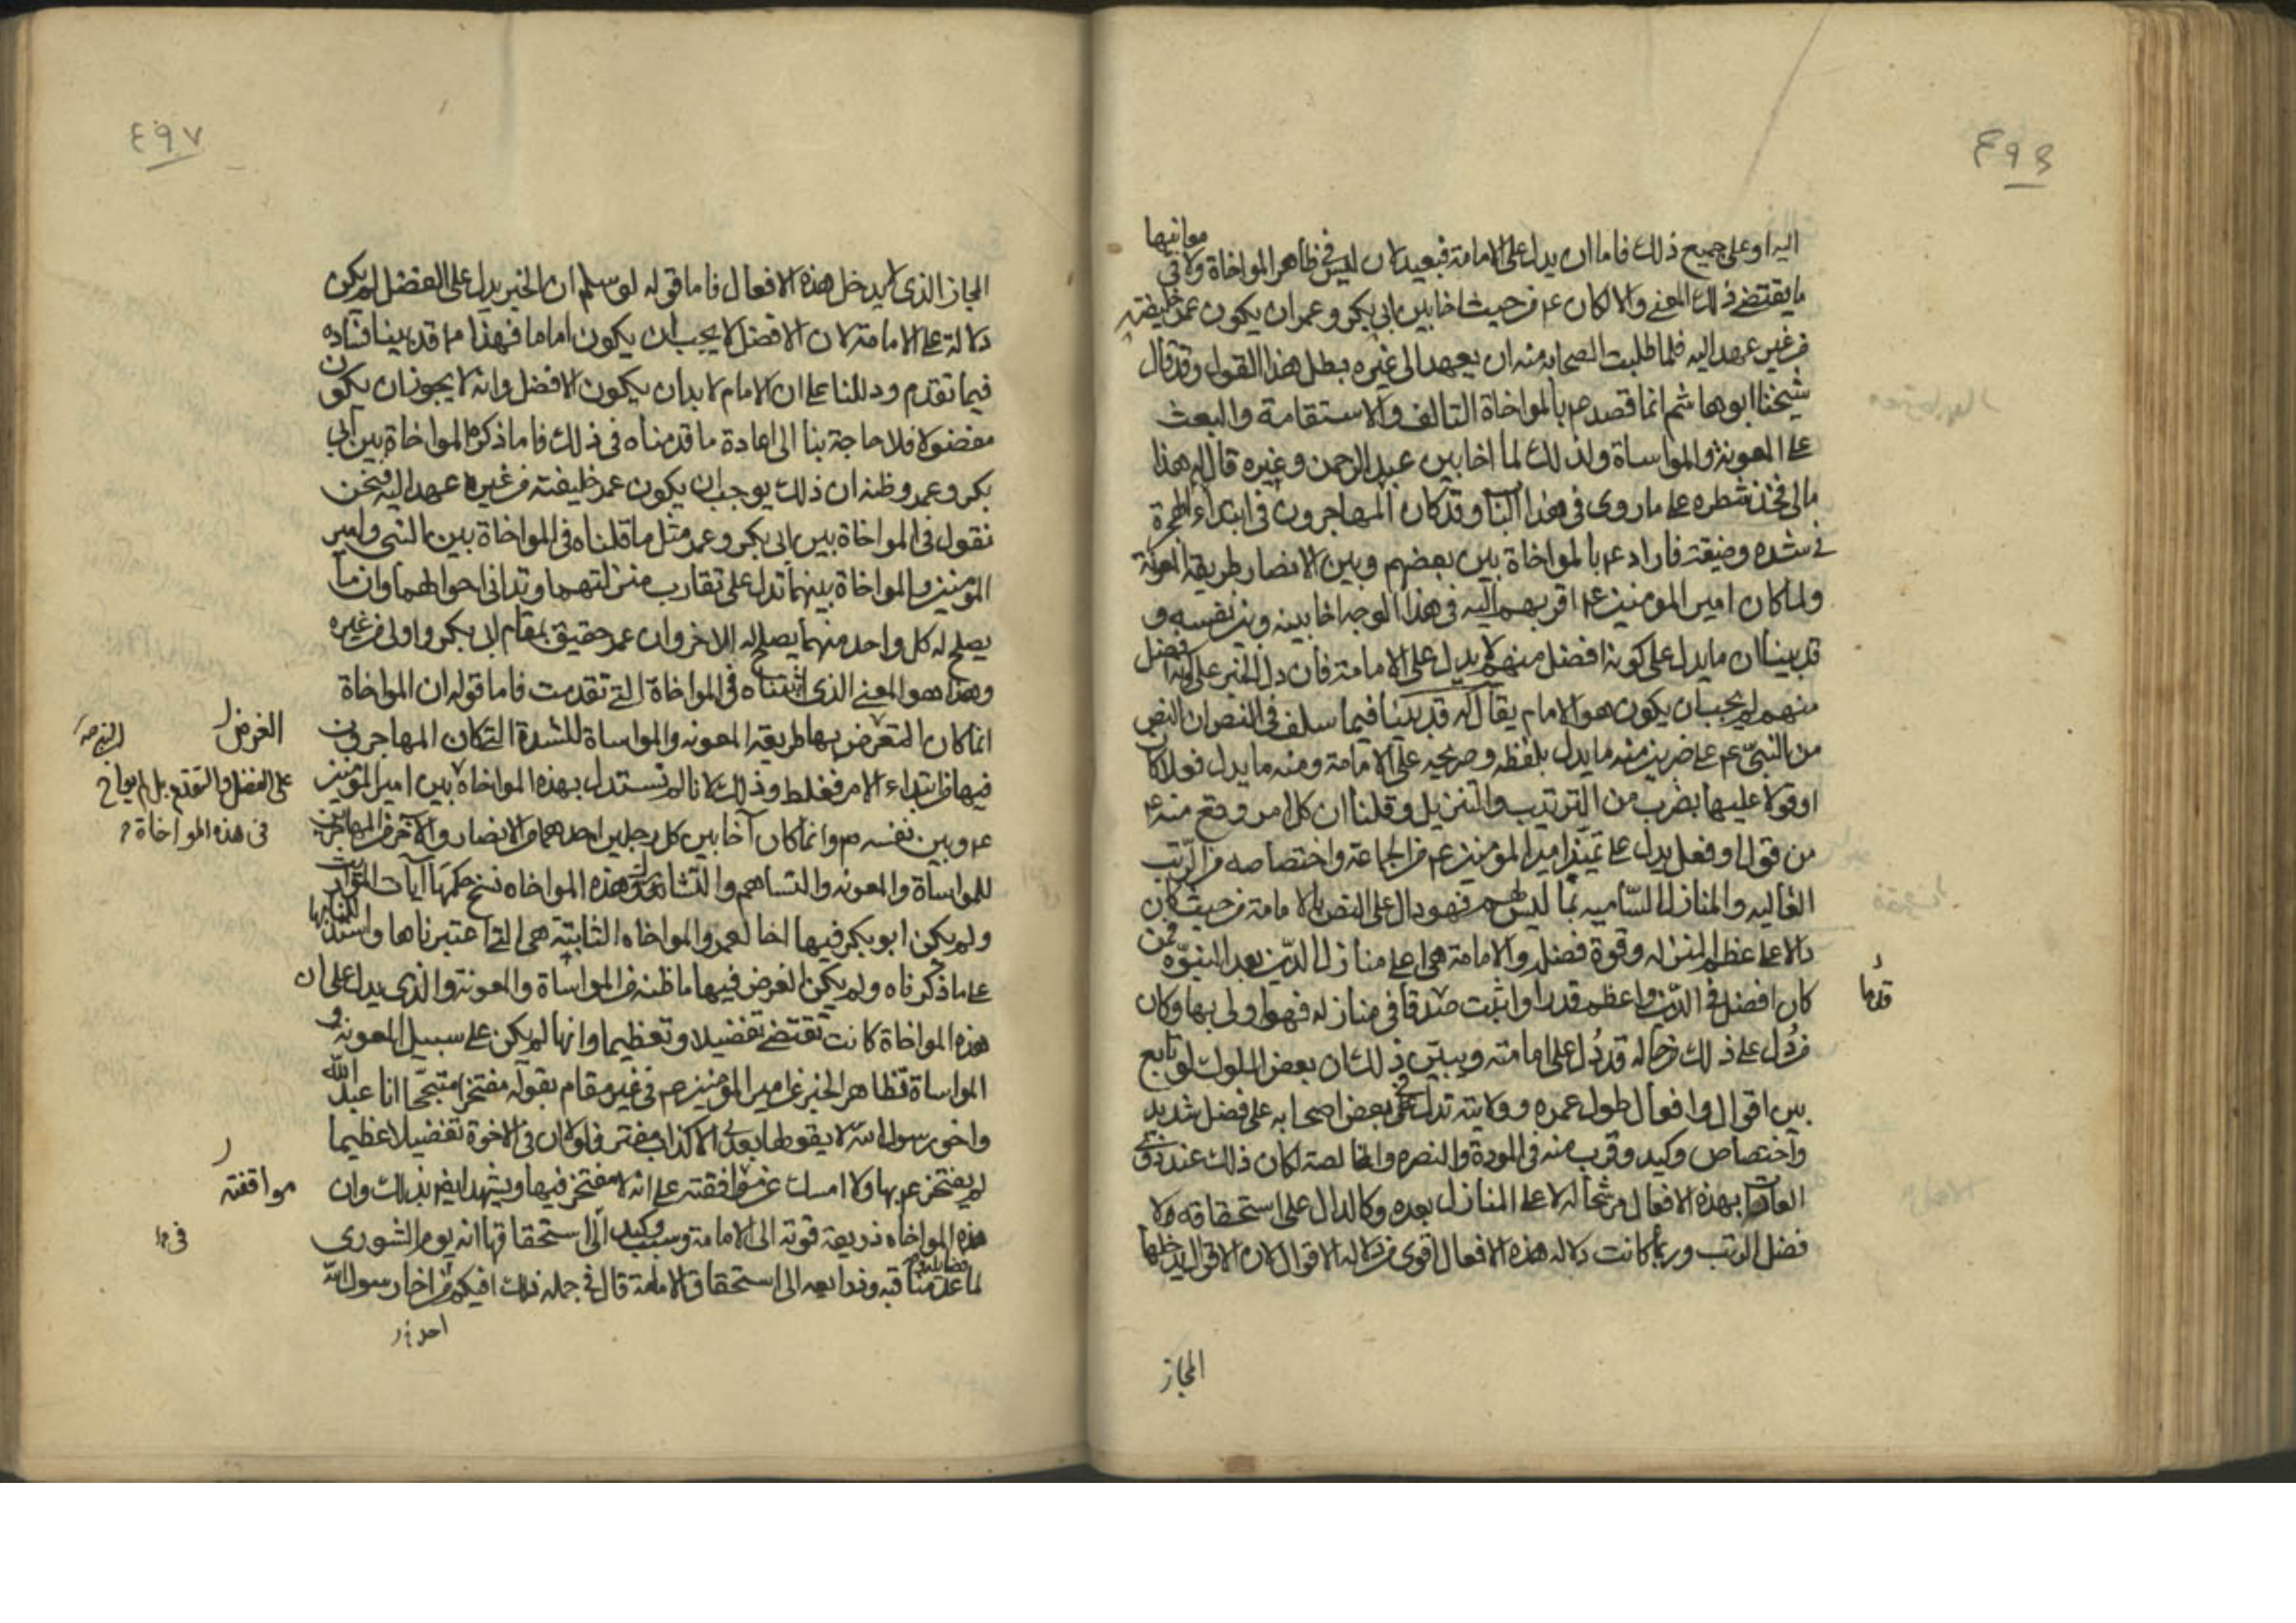 ٤٩٦
اليه او على جميع ذلك فاما ان يدل على الامامة فبعيد لان ليس في ظاهر المواخاة ولا في معانيها
ما يقتضي ذلك المعنى والا لكان عم من حيث اخا بين ابي بكر وعمر ان يكون عمر خليفته
من غير عهد اليه فلما طلبت الصحابه منه ان يعهد الى غيره بطل هذا القول وقد قال
شيخنا ابو هاشم انما قصد عم بالمواخاة التالف والاستقامة والبعث
على المعونة والمواساة ولذلك لما اخا بين عبد الرحمن وغيره قال له هذا
مالي فخذ شطره على ما روى في هذا الباب وقد كان المهاجرون في ابتداء الهجرة
في شده وضيقة فاراد عم بالمواخاة بين بعضهم وبين الانصار طريقة المعونة
ولما كان امير المومنين عم اقربهم اليه في هذا الوجه اخا بينه وبين نفسه و
قد بينا ان ما يدل على كونه افضل منهم لا يدل على الامامة فان دل الخبر على انه افضل
منهم لم يجب ان يكون هو الامام يقال له قد بينا فيما سلف في النص ان النص
من النبي عم على ضربين منه ما يدل بلفظه وصريحه على الامامة ومنه ما يدل فعلا كان
او قولا عليها بضرب من الترتيب والتنزيل وقلنا ان كل امر وقع منه عم
من قول او فعل يدل على تميز امير المومنين عم من الجماعة واختصاصه من الرتب
العاليه والمنازل الساميه بما ليس لهم فهو دال على النص بالامامة من حيث كان
دالا على عظم المنزله وقوة فضل والامامة هي اعلى منازل الدين بعد النبوة فمن
كان افضل في الدين واعظم قدرا واثبت قدما في منازله فهو اولى بها وكان
من دل على ذلك من حاله قد دل على امامته ويبين ذلك ان بعض الملوك لو تابع
بين اقوال وافعال طول عمره وولايته تدل في بعض اصحابه على فضل شديد
واختصاص وكيد وقرب منه في المودة والنصره والخالصة لكان ذلك عند ذوي
العادات بهذه الافعال مرشحا له لاعلى المنازل بعده وكالدال على استحقاقه
فضل الرتب وربما كانت دلاله هذه الافعال اقوى من دلاله الاقوال لان الاقوال يدخلها
قدما
المجاز
٤٩٧
المجاز الذي لا يدخل هذه الافعال فاما قوله لو سلم ان الخبر يدل على الفضل لم يكن
دلالة على الامامة لان الافضل لا يجب ان يكون اماما فهذا مما قد بينا فساده
فيما تقدم ودللنا على ان الامام لا بد ان يكون الافضل وانه لا يجوز ان يكون
مفضولا فلا حاجة بنا الى اعادة ما قدمناه في ذلك فاما ذكره المواخاة بين ابي
بكر وعمر وظنه ان ذلك يوجب ان يكون عمر خليفته من غير عهد اليه فنحن
نقول في المواخاة بين ابي بكر وعمر مثل ما قلناه في المواخاة بين النبي وامير
المومنين والمواخاة بينهما تدل على تقارب منزلتهما وتداني احوالهما وان ما
يصلح له كل واحد منهما يصلح له الاخر وان عمر حقيق بمقام ابي بكر واولى من غيره
وهذا هو المعنى الذي اثبتناه في المواخاة التي تقدمت فاما قوله ان المواخاة
انما كان المتعرض بها طريقة المعونه والمواساة للشدة التي كان المهاجرون
فيها في ابتداء الامر فغلط وذلك لانا لم نستدل بهذه المواخاة بين امير المومنين
عم وبين نفسه م وانما كان آخا بين كل رجلين احدهما من الانصار والآخر من المهاجرين
للمواساة والمعونه والتساهم والتشارك وهذه المواخاه نسخ حكمها آيات المواريث
ولم يكن ابو بكر فيها اخا لعمر والمواخاه الثابتة هي التي اعتبرناها واستدللنا بها
على ما ذكرناه ولم يكن الغرض فيها ما ظنه من المواساة والمعونة والذي يدل على ان
هذه المواخاة كانت تقتضي تفضيلا وتعظيما وانها لم يكن على سبيل المعونه و
المواساة تظاهر الخبر عن امير المومنين عم في غير مقام بقوله مفتخرا متبجحا انا عبد الله
واخو رسول الله لا يقولها بعدي الا كذاب مفتر فلولا ان في الاخوة تفضيلا عظيما
لم يفتخر عم بها ولا امسك عن موافقته على انه لا مفتخر فيها ويشهد ايضا بذلك وان
هذه المواخاه ذريعة قوية الى الامامة وسبب وكيد الى استحقاقها انه يوم الشورى
لما عدد فضايله ومناقبه وذرايعه الى استحقاق الامامة قال في جمله ذلك افيكم من اخا رسول الله
الغرض
على الفضل والتقدم بل لم يواخ
في هذه المواخاة
موافقته
في
احد